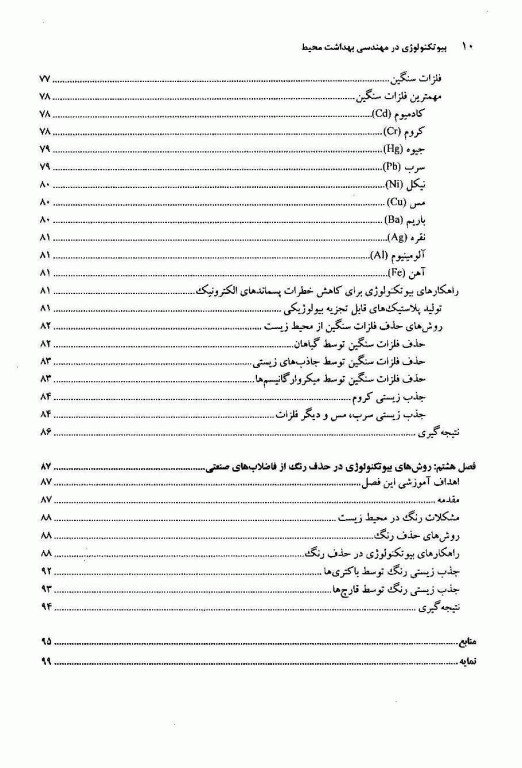 ۱۰ بیوتکنولوژی در مهندسی بهداشت محیط
فلزات سنگین ........ ۷۷
مهمترین فلزات سنگین ........ ۷۸
کادمیوم (Cd) ........ ۷۸
کروم (Cr) ........ ۷۸
جیوه (Hg) ........ ۷۹
سرب (Pb) ........ ۷۹
نیکل (Ni) ........ ۸۰
مس (Cu) ........ ۸۰
باریم (Ba) ........ ۸۰
نقره (Ag) ........ ۸۱
آلومینیوم (Al) ........ ۸۱
آهن (Fe) ........ ۸۱
راهکارهای بیوتکنولوژی برای کاهش خطرات پسماندهای الکترونیک ........ ۸۱
تولید پلاستیک‌های قابل تجزیه بیولوژیکی ........ ۸۱
روش‌های حذف فلزات سنگین از محیط زیست ........ ۸۲
حذف فلزات سنگین توسط گیاهان ........ ۸۲
حذف فلزات سنگین توسط جاذب‌های زیستی ........ ۸۳
حذف فلزات سنگین توسط میکروارگانیسم‌ها ........ ۸۳
جذب زیستی کروم ........ ۸۴
جذب زیستی سرب، مس و دیگر فلزات ........ ۸۴
نتیجه گیری ........ ۸۶
فصل هشتم: روش‌های بیوتکنولوژی در حذف رنگ از فاضلاب‌های صنعتی ........ ۸۷
اهداف آموزشی این فصل ........ ۸۷
مقدمه ........ ۸۷
مشکلات رنگ در محیط زیست ........ ۸۸
روش‌های حذف رنگ ........ ۸۸
راهکارهای بیوتکنولوژی در حذف رنگ ........ ۸۸
جذب زیستی رنگ توسط باکتری‌ها ........ ۹۲
جذب زیستی رنگ توسط قارچ‌ها ........ ۹۳
نتیجه گیری ........ ۹۴
منابع ........ ۹۵
نمایه ........ ۹۹